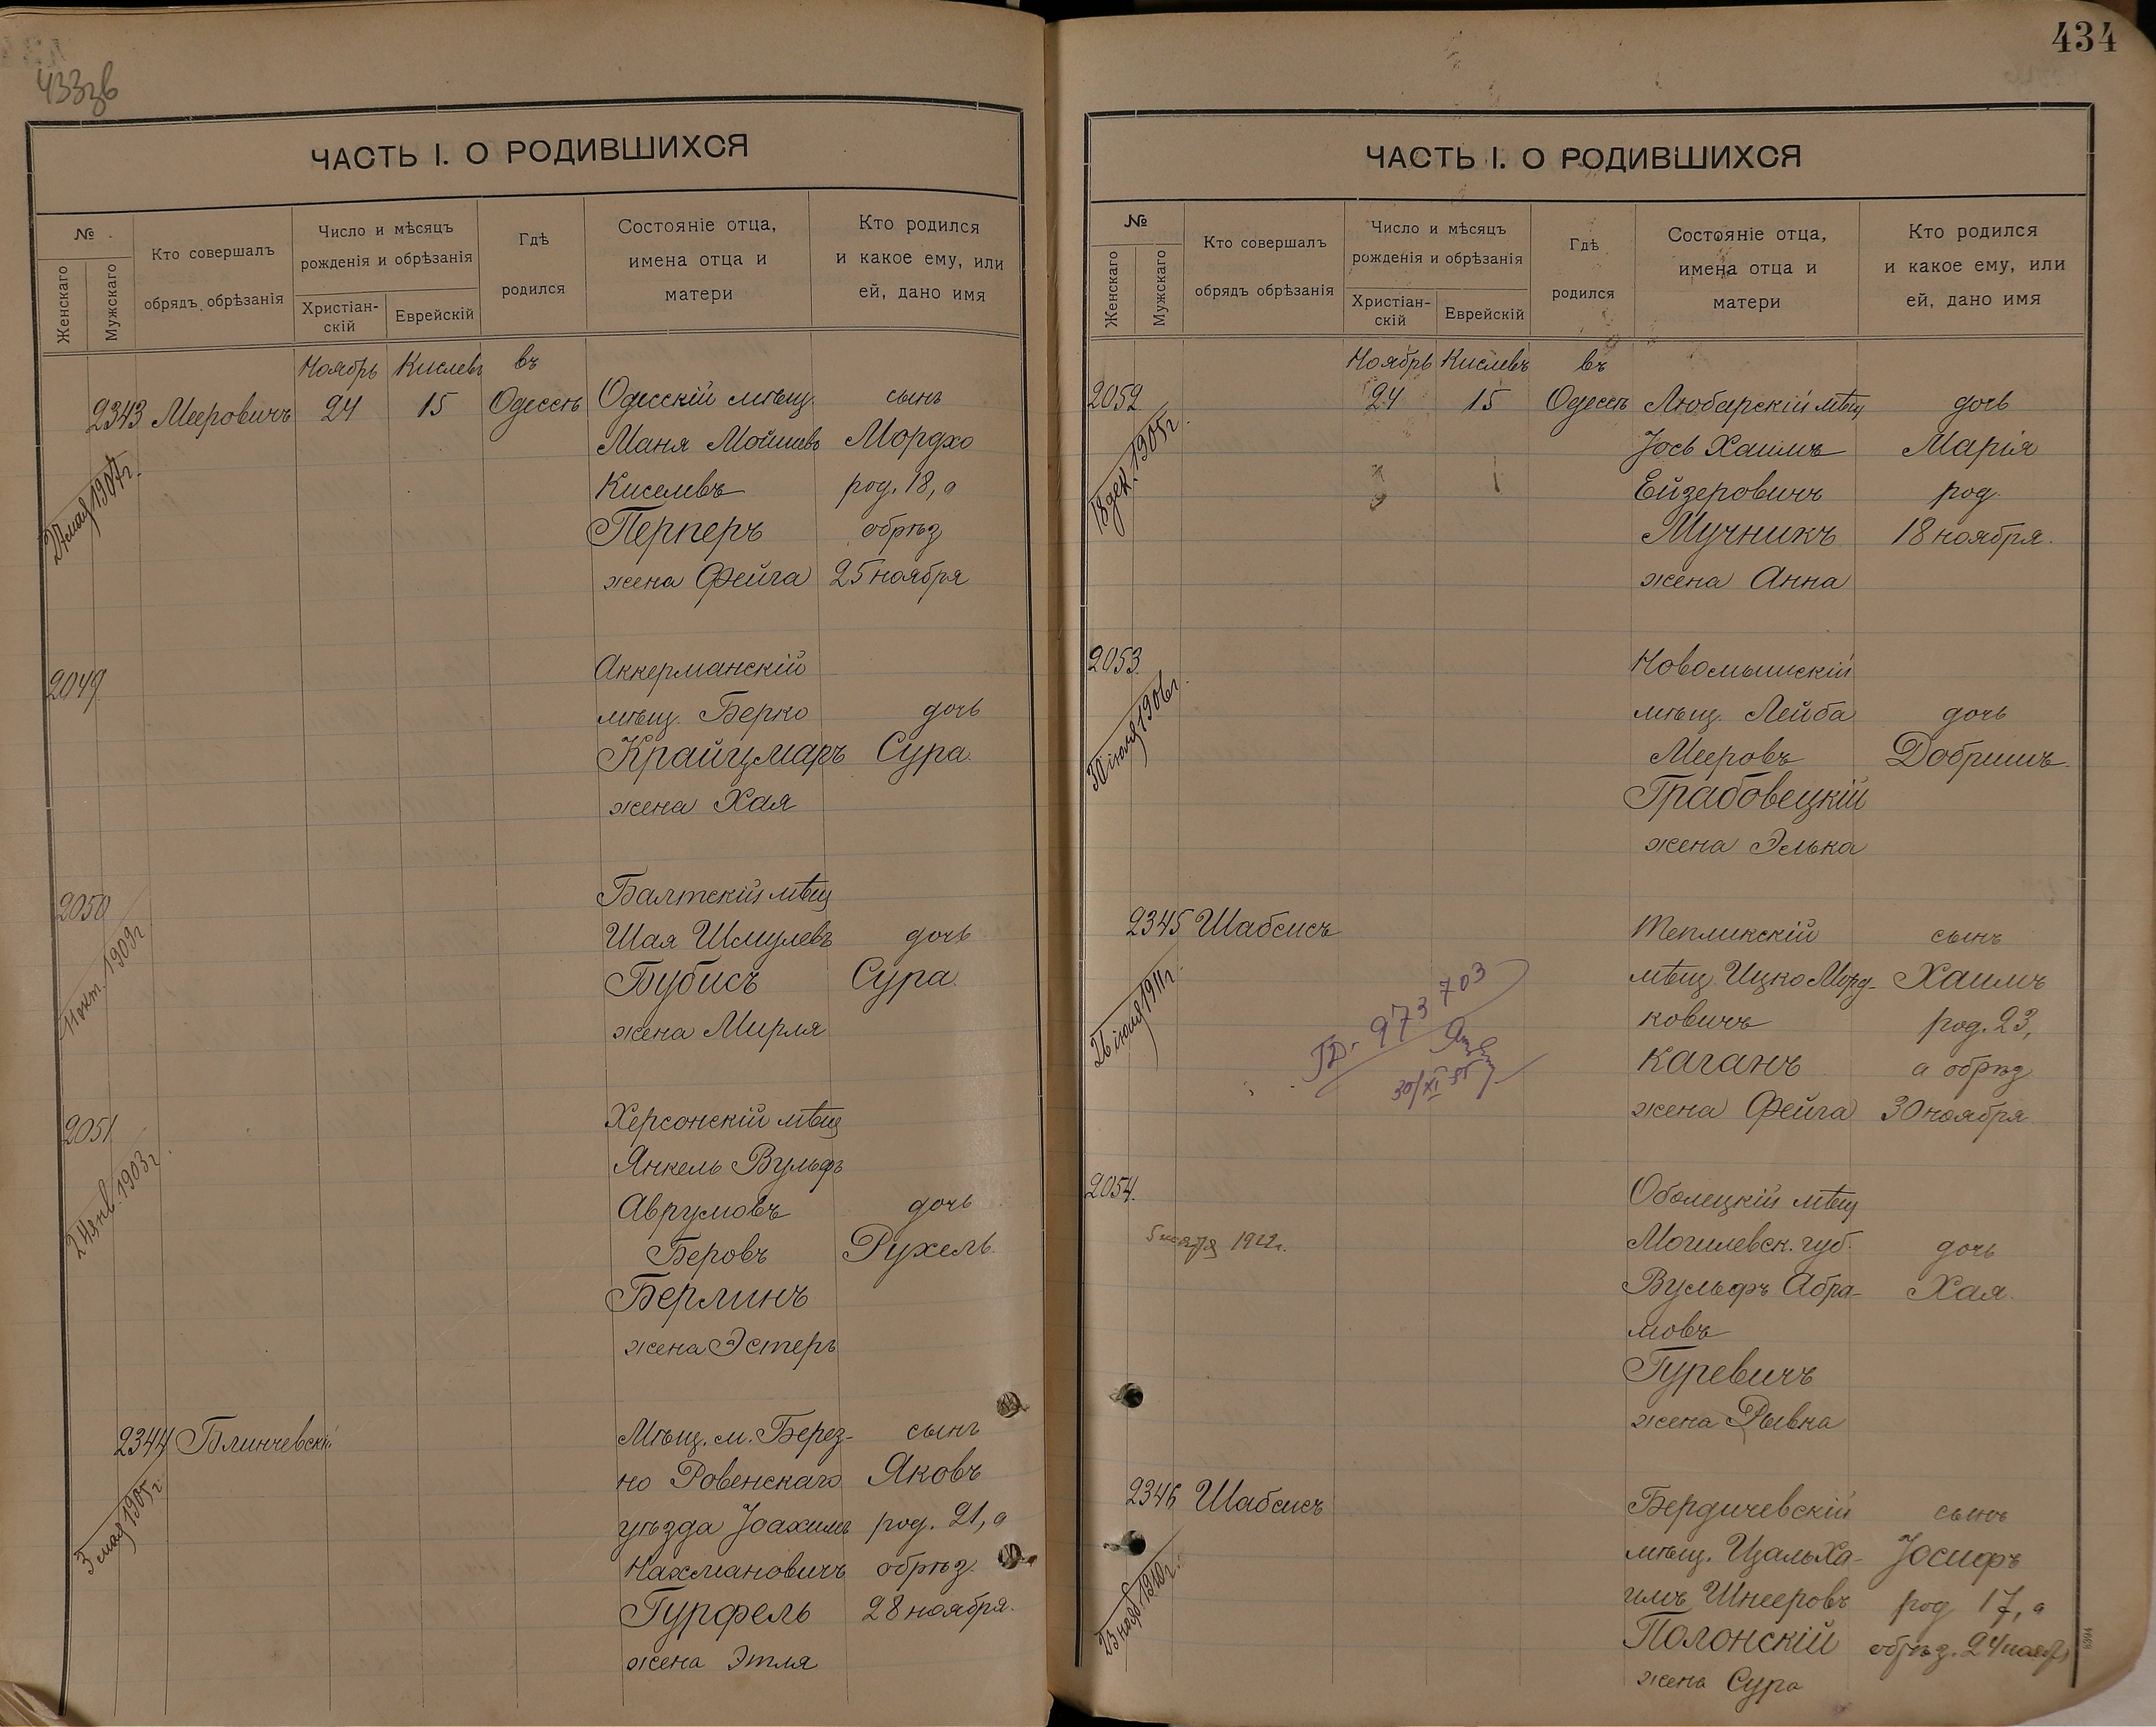 433зв
ЧАСТЬ I. О РОДИВШИХСЯ
№
Женскаго
Мужскаго
Кто совершалъ
обрядъ обрѣзанія
Число и мѣсяцъ
рожденія и обрѣзанія
Христіан-
скій
Еврейскій
Гдѣ
родился
Состояніе отца,
имена отца и
матери
Кто родился
и какое ему, или
ей, дано имя
Ноябрь Кислевъ въ
2343 Мееровичъ 24 15 Одессѣ Одесскій мѣщ. сынъ
Маня Мойшевъ Мордхо
Киселевъ род. 18, а
Перперъ обрѣз
жена Фейга 25 ноября
27 мая 1907г.
Аккерманскій
2049
мѣщ. Берко дочь
Крайцмаръ Сура.
жена Хая
Балтскій мѣщ
2050
Шая Шмулевъ дочь
Бубисъ Сура.
жена Мирля
11 окт. 1909г
Херсонскій мѣщ
2051
Янкель Вульфъ
Аврумовъ дочь
Беровъ Рухель.
Берлинъ
жена Эстеръ
24 янв. 1903г.
2344 Блинчевскій Мѣщ. м. Берез- сынъ
но Ровенскаго Яковъ
уѣзда Іоахимъ род. 21, а
Нахмановичъ обрѣз.
Гурфель 28 ноября.
жена Этля
3 мая 1905г
434
ЧАСТЬ I. О РОДИВШИХСЯ
№
Женскаго
Мужскаго
Кто совершалъ
обрядъ обрѣзанія
Число и мѣсяцъ
рожденія и обрѣзанія
Христіан-
скій
Еврейскій
Гдѣ
родился
Состояніе отца,
имена отца и
матери
Кто родился
и какое ему, или
ей, дано имя
Ноябрь Кислевъ въ
2052 24 15 Одессѣ Любарскій мѣщ дочь
Іось Хаимъ Марія
Ейзеровичъ род.
Мучникъ 18 ноября.
жена Анна
18 дек. 1905г.
2053. Новомышскій
мѣщ. Лейба дочь
Мееровъ Добришъ.
Грабовецкій
жена Элька
30 іюля 1906г.
2345 Шабсисъ Тепликскій сынъ
мѣщ. Ицко Морд- Хаимъ
ковичъ род. 23,
Каганъ а обрѣз
жена Фейга 30 ноября
26 іюля 1911г.
973703
30/XI
2054. Оболецкій мѣщ
Могилевск. губ. дочь
Вульфъ Абра- Хая.
мовъ
Гуревичъ
жена Рывка
1922г.
2346 Шабсисъ Бердичевскій сынъ
мѣщ. Цаль Ха- Іосифъ
имъ Шнееровъ род 17, а
Полонскій обрѣз. 24 нояб
жена Сура
23 нояб 1910г.